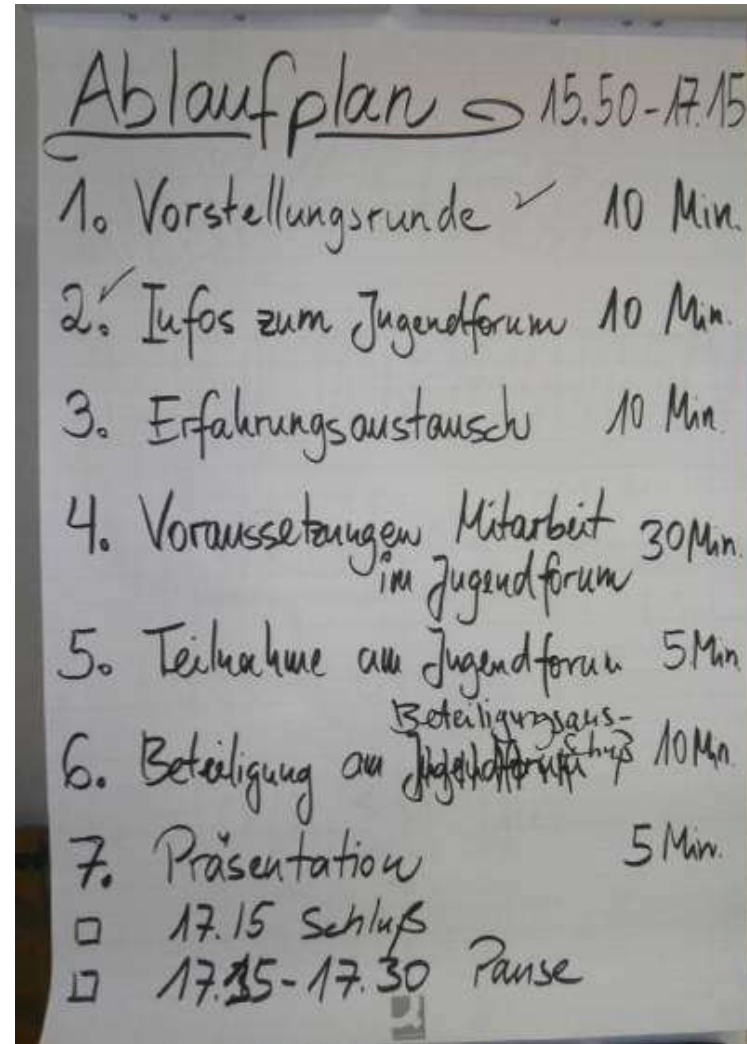 Ablaufplan 15.50-17.15
1. Vorstellungsrunde ✓ 10 Min.
2. ✓ Infos zum Jugendforum 10 Min.
3. Erfahrungsaustausch 10 Min.
4. Voraussetzungen Mitarbeit 30 Min.
im Jugendforum
5. Teilnahme am Jugendforum 5 Min
Beteiligungsaus-
6. Beteiligung am Jugendforum schuß 10 Min.
7. Präsentation 5 Min.
□ 17.15 Schluß
□ 17.15-17.30 Pause